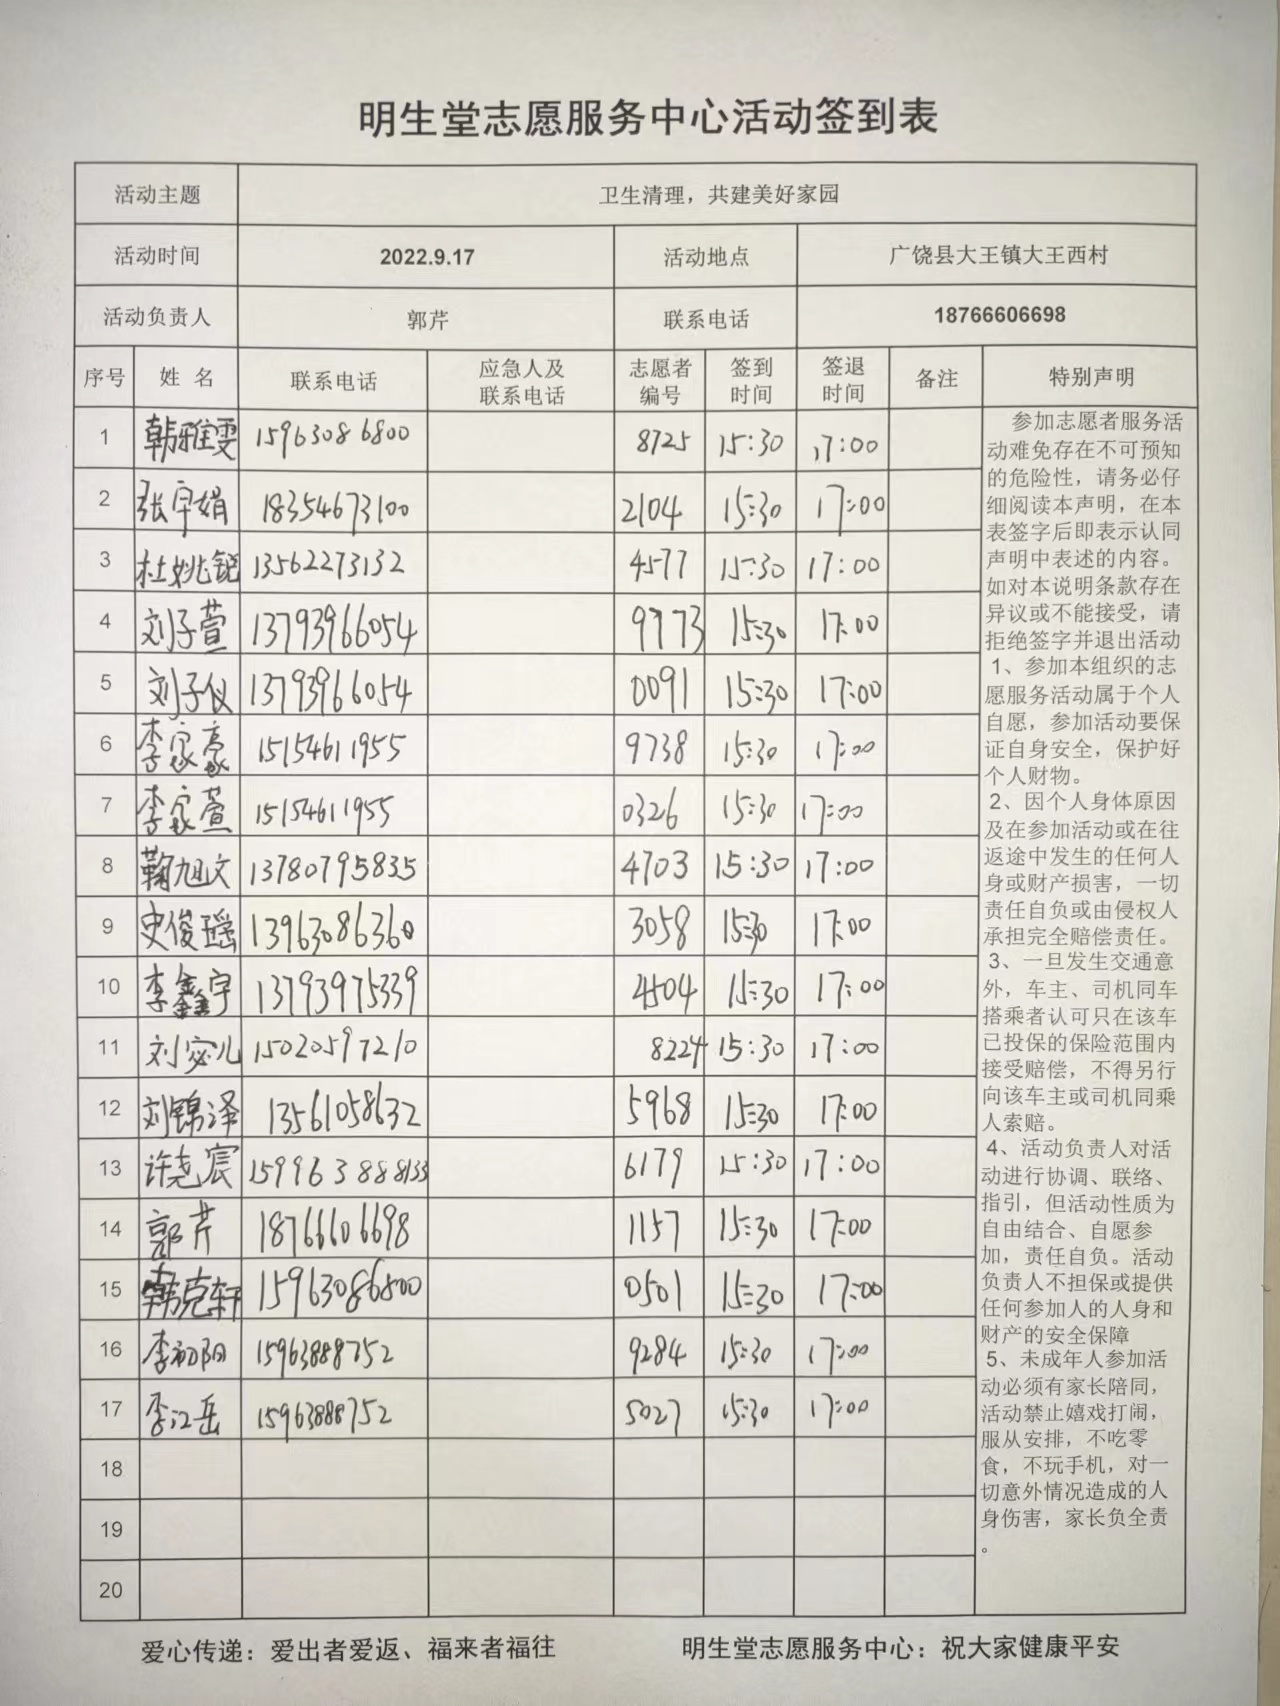 明生堂志愿服务中心活动签到表
活动主题 卫生清理，共建美好家园
活动时间 2022.9.17 活动地点 广饶县大王镇大王西村
活动负责人 郭芹 联系电话 18766606698
序号 姓名 联系电话 应急人及联系电话 志愿者编号 签到时间 签退时间 备注 特别声明
1 韩雅雯 15963086800 8725 15:30 17:00
2 张宇娟 18354673100 2104 15:30 17:00
3 杜姚锐 13562273132 4577 15:30 17:00
4 刘子萱 13793966054 9773 15:30 17:00
5 刘子仪 13793966054 0091 15:30 17:00
6 李家豪 15154611955 9738 15:30 17:00
7 李家萱 15154611955 0326 15:30 17:00
8 鞠旭文 13780795835 4703 15:30 17:00
9 史俊瑶 13963086360 3058 15:30 17:00
10 李鑫宇 13793975339 4504 15:30 17:00
11 刘宓儿 15020597210 8224 15:30 17:00
12 刘锦泽 13561058632 5968 15:30 17:00
13 许尧宸 159963888133 6179 15:30 17:00
14 郭芹 18766606698 1157 15:30 17:00
15 韩克轩 15963086800 0501 15:30 17:00
16 李初阳 15963888752 9284 15:30 17:00
17 李江岳 15963888752 5027 15:30 17:00
18
19
20
参加志愿者服务活
动难免存在不可预知
的危险性，请务必仔
细阅读本声明，在本
表签字后即表示认同
声明中表述的内容。
如对本说明条款存在
异议或不能接受，请
拒绝签字并退出活动
1、参加本组织的志
愿服务活动属于个人
自愿，参加活动要保
证自身安全，保护好
个人财物。
2、因个人身体原因
及在参加活动或在往
返途中发生的任何人
身或财产损害，一切
责任自负或由侵权人
承担完全赔偿责任。
3、一旦发生交通意
外，车主、司机同车
搭乘者认可只在该车
已投保的保险范围内
接受赔偿，不得另行
向该车主或司机同乘
人索赔。
4、活动负责人对活
动进行协调、联络、
指引，但活动性质为
自由结合、自愿参
加，责任自负。活动
负责人不担保或提供
任何参加人的人身和
财产的安全保障
5、未成年人参加活
动必须有家长陪同，
活动禁止嬉戏打闹，
服从安排，不吃零
食，不玩手机，对一
切意外情况造成的人
身伤害，家长负全责
。
爱心传递：爱出者爱返、福来者福往 明生堂志愿服务中心：祝大家健康平安